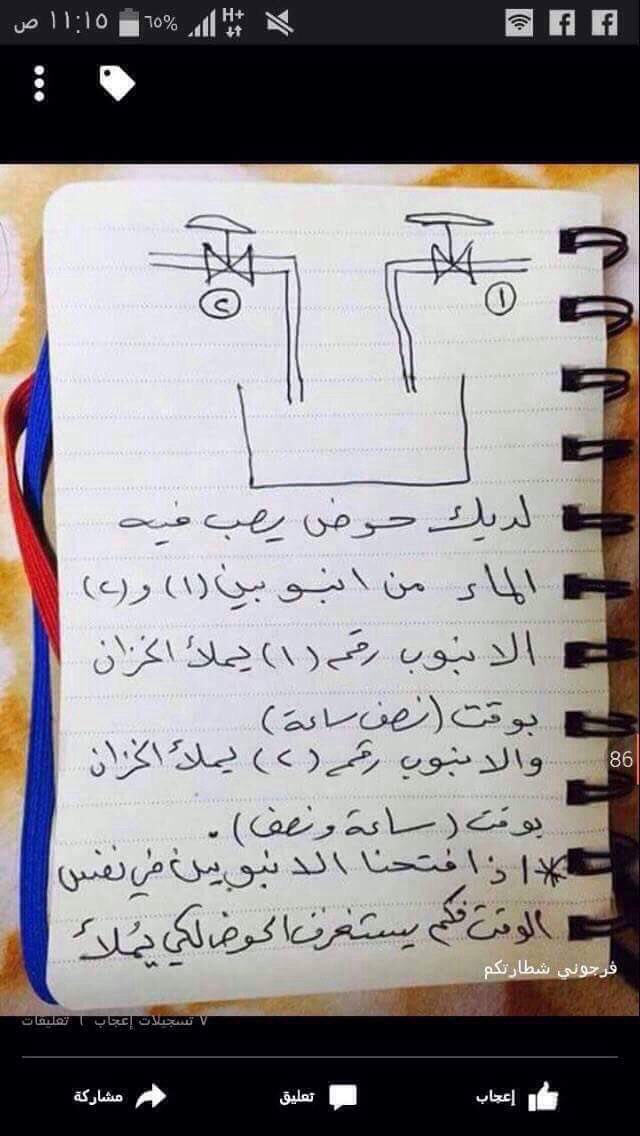 ١١:١٥ ص
٦٥%
H+
١
٢
لديك حوض يصب فيه
الماء من انبوبين (١) و(٢)
الانبوب رقم (١) يملأ الخزان
بوقت (نصف ساعة)
والانبوب رقم (٢) يملأ الخزان
بوقت (ساعة ونصف).
*اذا فتحنا الانبوبين في نفس
الوقت فكم يستغرق الحوض لكي يُملأ
86
فرجوني شطارتكم
٧ تسجيلات إعجاب ٦ تعليقات
إعجاب
تعليق
مشاركة